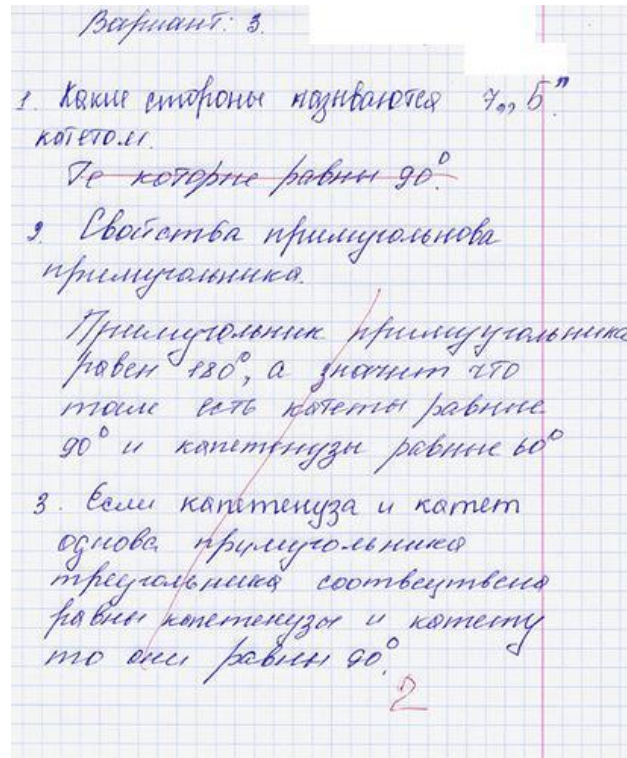 Вариант: 3.
1. Какие стороны називаются 7 „Б"
катетом.
Те которие равны 90°.
2. Свойства примугольнова
примугольника.
Примугольник примуугольника
равен 180°, а значит что
там есть катеты равние
90° и капетенузы равные 60°
3. Если капетенуза и катет
однова примугольника
треугольника соотвецтвено
равны капетенузы и катету
то они равны 90°.
2